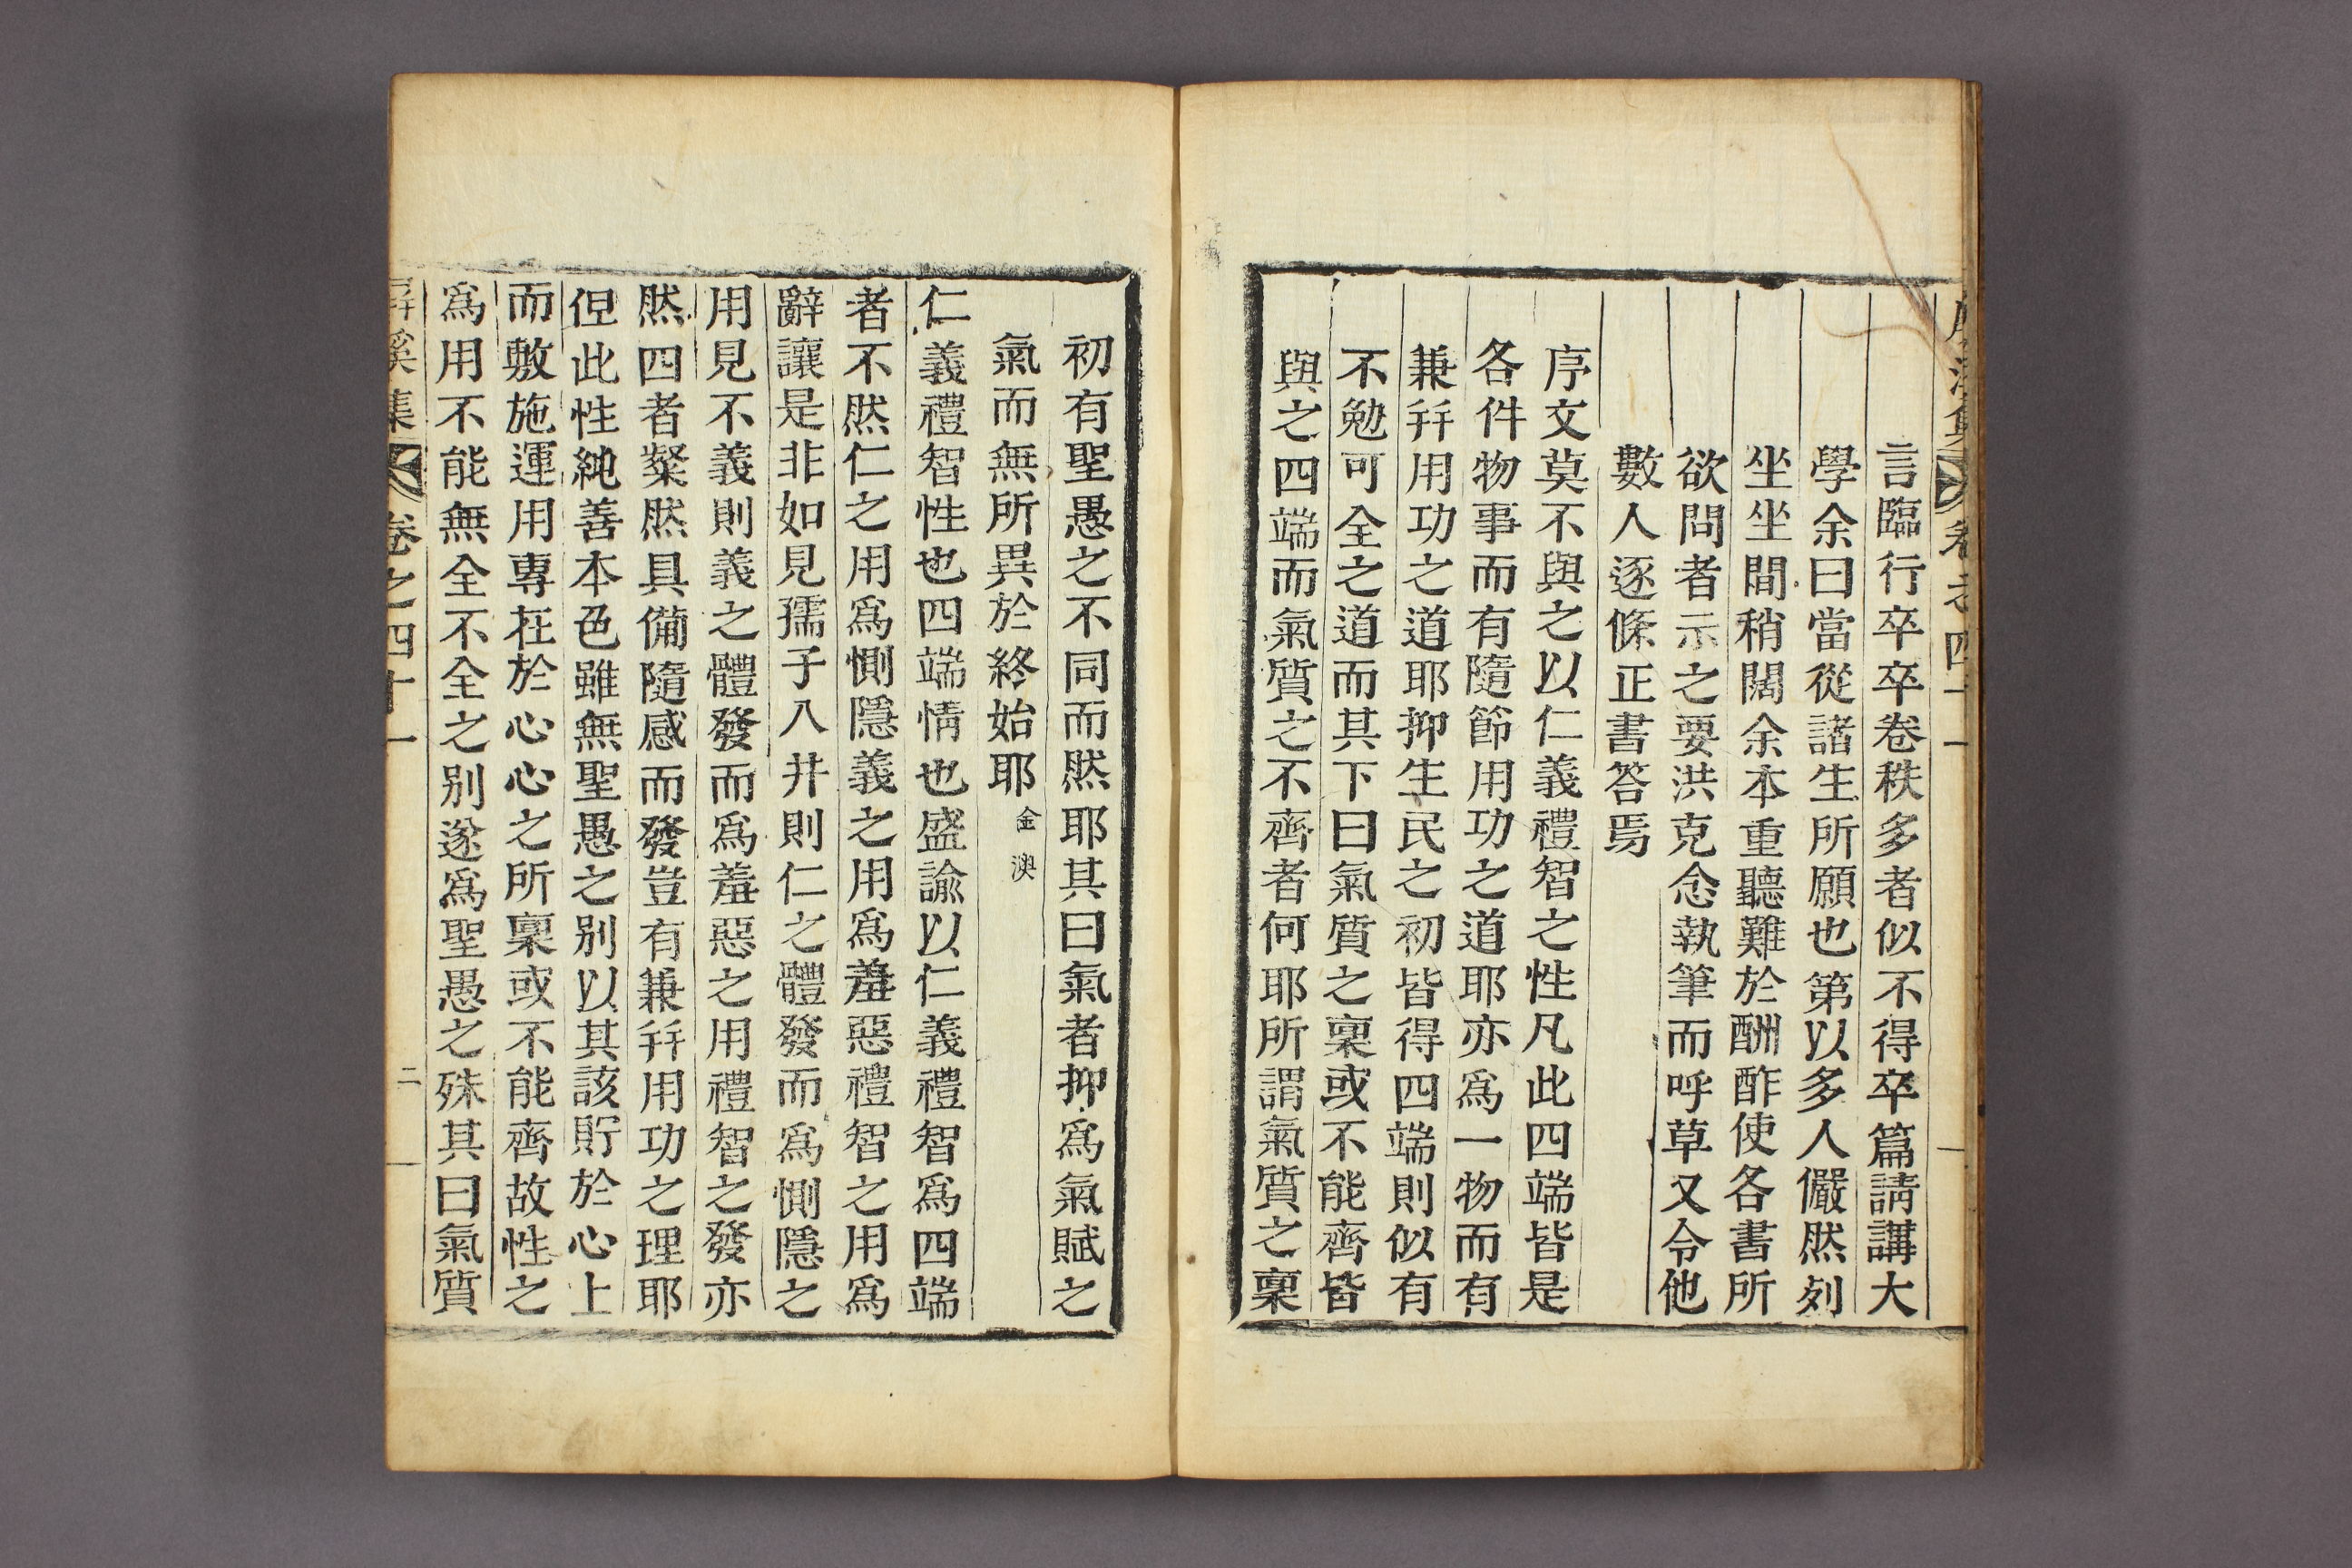 言臨行卒卒卷秩多者似不得卒篇請講大
學余曰當從諸生所願也第以多人儼然列
坐坐間稍闊余本重聽難於酬酢使各書所
欲問者示之要洪克念執筆而呼草又令他
數人逐條正書答焉
序文莫不與之以仁義禮智之性凡此四端皆是
各件物事而有隨節用功之道耶亦爲一物而有
兼幷用功之道耶抑生民之初皆得四端則似有
不勉可全之道而其下曰氣質之稟或不能齊皆
與之四端而氣質之不齊者何耶所謂氣質之稟
初有聖愚之不同而然耶其曰氣者抑爲氣賦之
氣而無所異於終始耶金澳
仁義禮智性也四端情也盛諭以仁義禮智爲四端
者不然仁之用爲惻隱義之用爲羞惡禮智之用爲
辭讓是非如見孺子入井則仁之體發而爲惻隱之
用見不義則義之體發而爲羞惡之用禮智之發亦
然四者粲然具備隨感而發豈有兼幷用功之理耶
但此性純善本色雖無聖愚之別以其該貯於心上
而敷施運用專在於心心之所稟或不能齊故性之
爲用不能無全不全之別遂爲聖愚之殊其曰氣質
屏溪集 卷之四十一 二